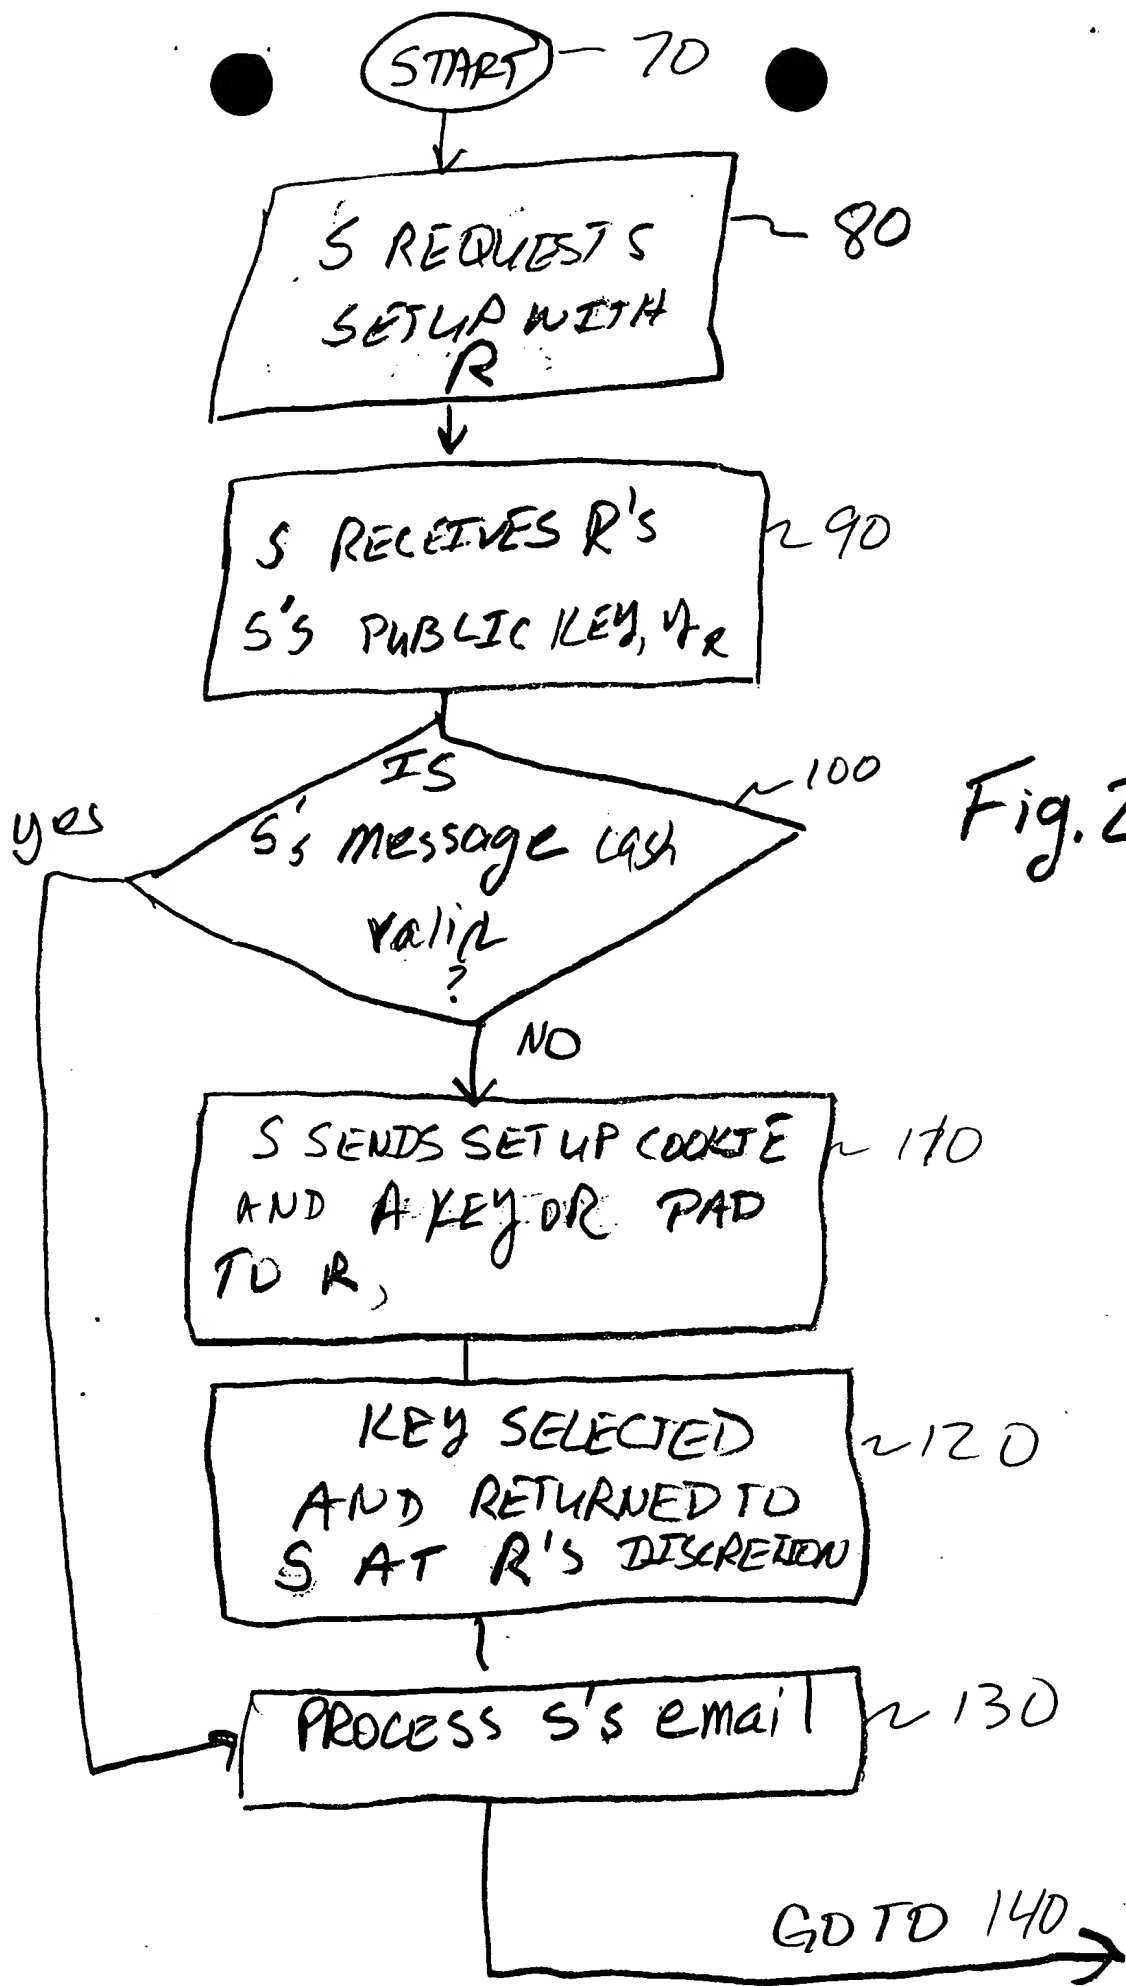 START 70
80
S REQUESTS
SETUP WITH
R
90
S RECEIVES R'S
S'S PUBLIC KEY, y_R
IS
100
yes
S's message cash
valid
?
Fig. 2
NO
S SENDS SETUP COOKIE 110
AND A KEY OR PAD
TO R,
KEY SELECTED 120
AND RETURNED TO
S AT R'S DISCRETION
PROCESS S's email 130
GO TO 140